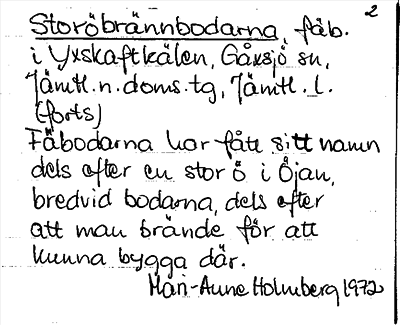 2
Storöbrännbodarna, fäb.
i Yxskaftkälen, Gåxsjö sn,
Jämtl.n.doms.tg, Jämtl.l.
(forts)
Fäbodarna har fått sitt namn
dels efter en stor ö i Öjan,
bredvid bodarna, dels efter
att man brände för att
kunna bygga där.
Mari-Anne Holmberg 1972